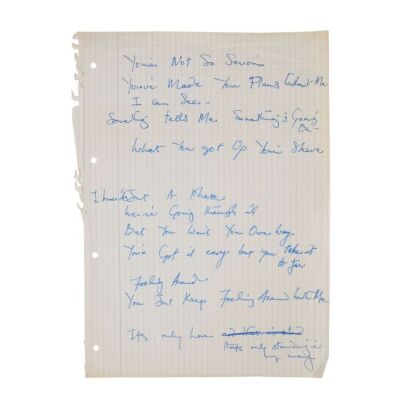 You're Not So Serious
You've Made Your Plans Without Me
I can See.
Something tells Me Something's Going
On
What You got Up Your Sleeve
Just A Phase
We're Going through it
But You Want Your Own Way
You've Got it easy but you take it
to far
Fooling Around
You Just Keep Fooling Around With Me
Its only Love
thats only standing in
my way